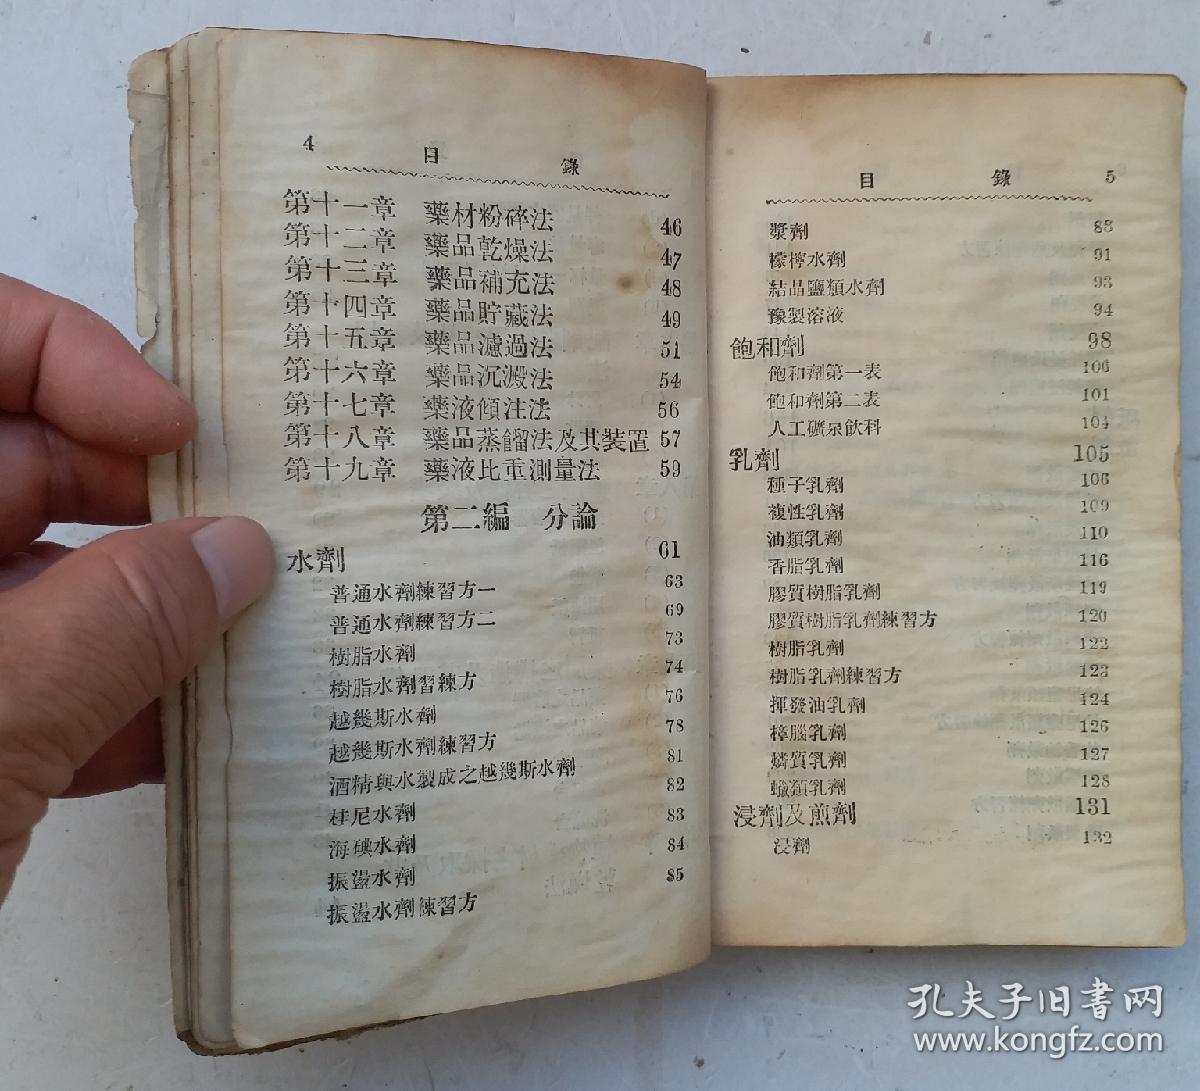 4 目 錄
第十一章 藥材粉碎法 46
第十二章 藥品乾燥法 47
第十三章 藥品補充法 48
第十四章 藥品貯藏法 49
第十五章 藥品濾過法 51
第十六章 藥品沉澱法 54
第十七章 藥液傾注法 56
第十八章 藥品蒸餾法及其裝置 57
第十九章 藥液比重測量法 59
第二編 分論
水劑 61
普通水劑練習方一 63
普通水劑練習方二 69
樹脂水劑 73
樹脂水劑習練方 74
越幾斯水劑 76
越幾斯水劑練習方 78
酒精與水製成之越幾斯水劑 81
荏尼水劑 82
海碘水劑 83
振盪水劑 84
振盪水劑練習方 85
目 錄 5
漿劑 88
檬檸水劑 91
結晶鹽類水劑 93
豫製溶液 94
飽和劑 98
飽和劑第一表 100
飽和劑第二表 101
人工礦泉飲料 104
乳劑 105
種子乳劑 106
複性乳劑 109
油類乳劑 110
香脂乳劑 116
膠質樹脂乳劑 119
膠質樹脂乳劑練習方 120
樹脂乳劑 122
樹脂乳劑練習方 123
揮發油乳劑 124
樟腦乳劑 126
燐質乳劑 127
蠟類乳劑 128
浸劑及煎劑 131
浸劑 132
孔夫子旧書网
www.kongfz.com